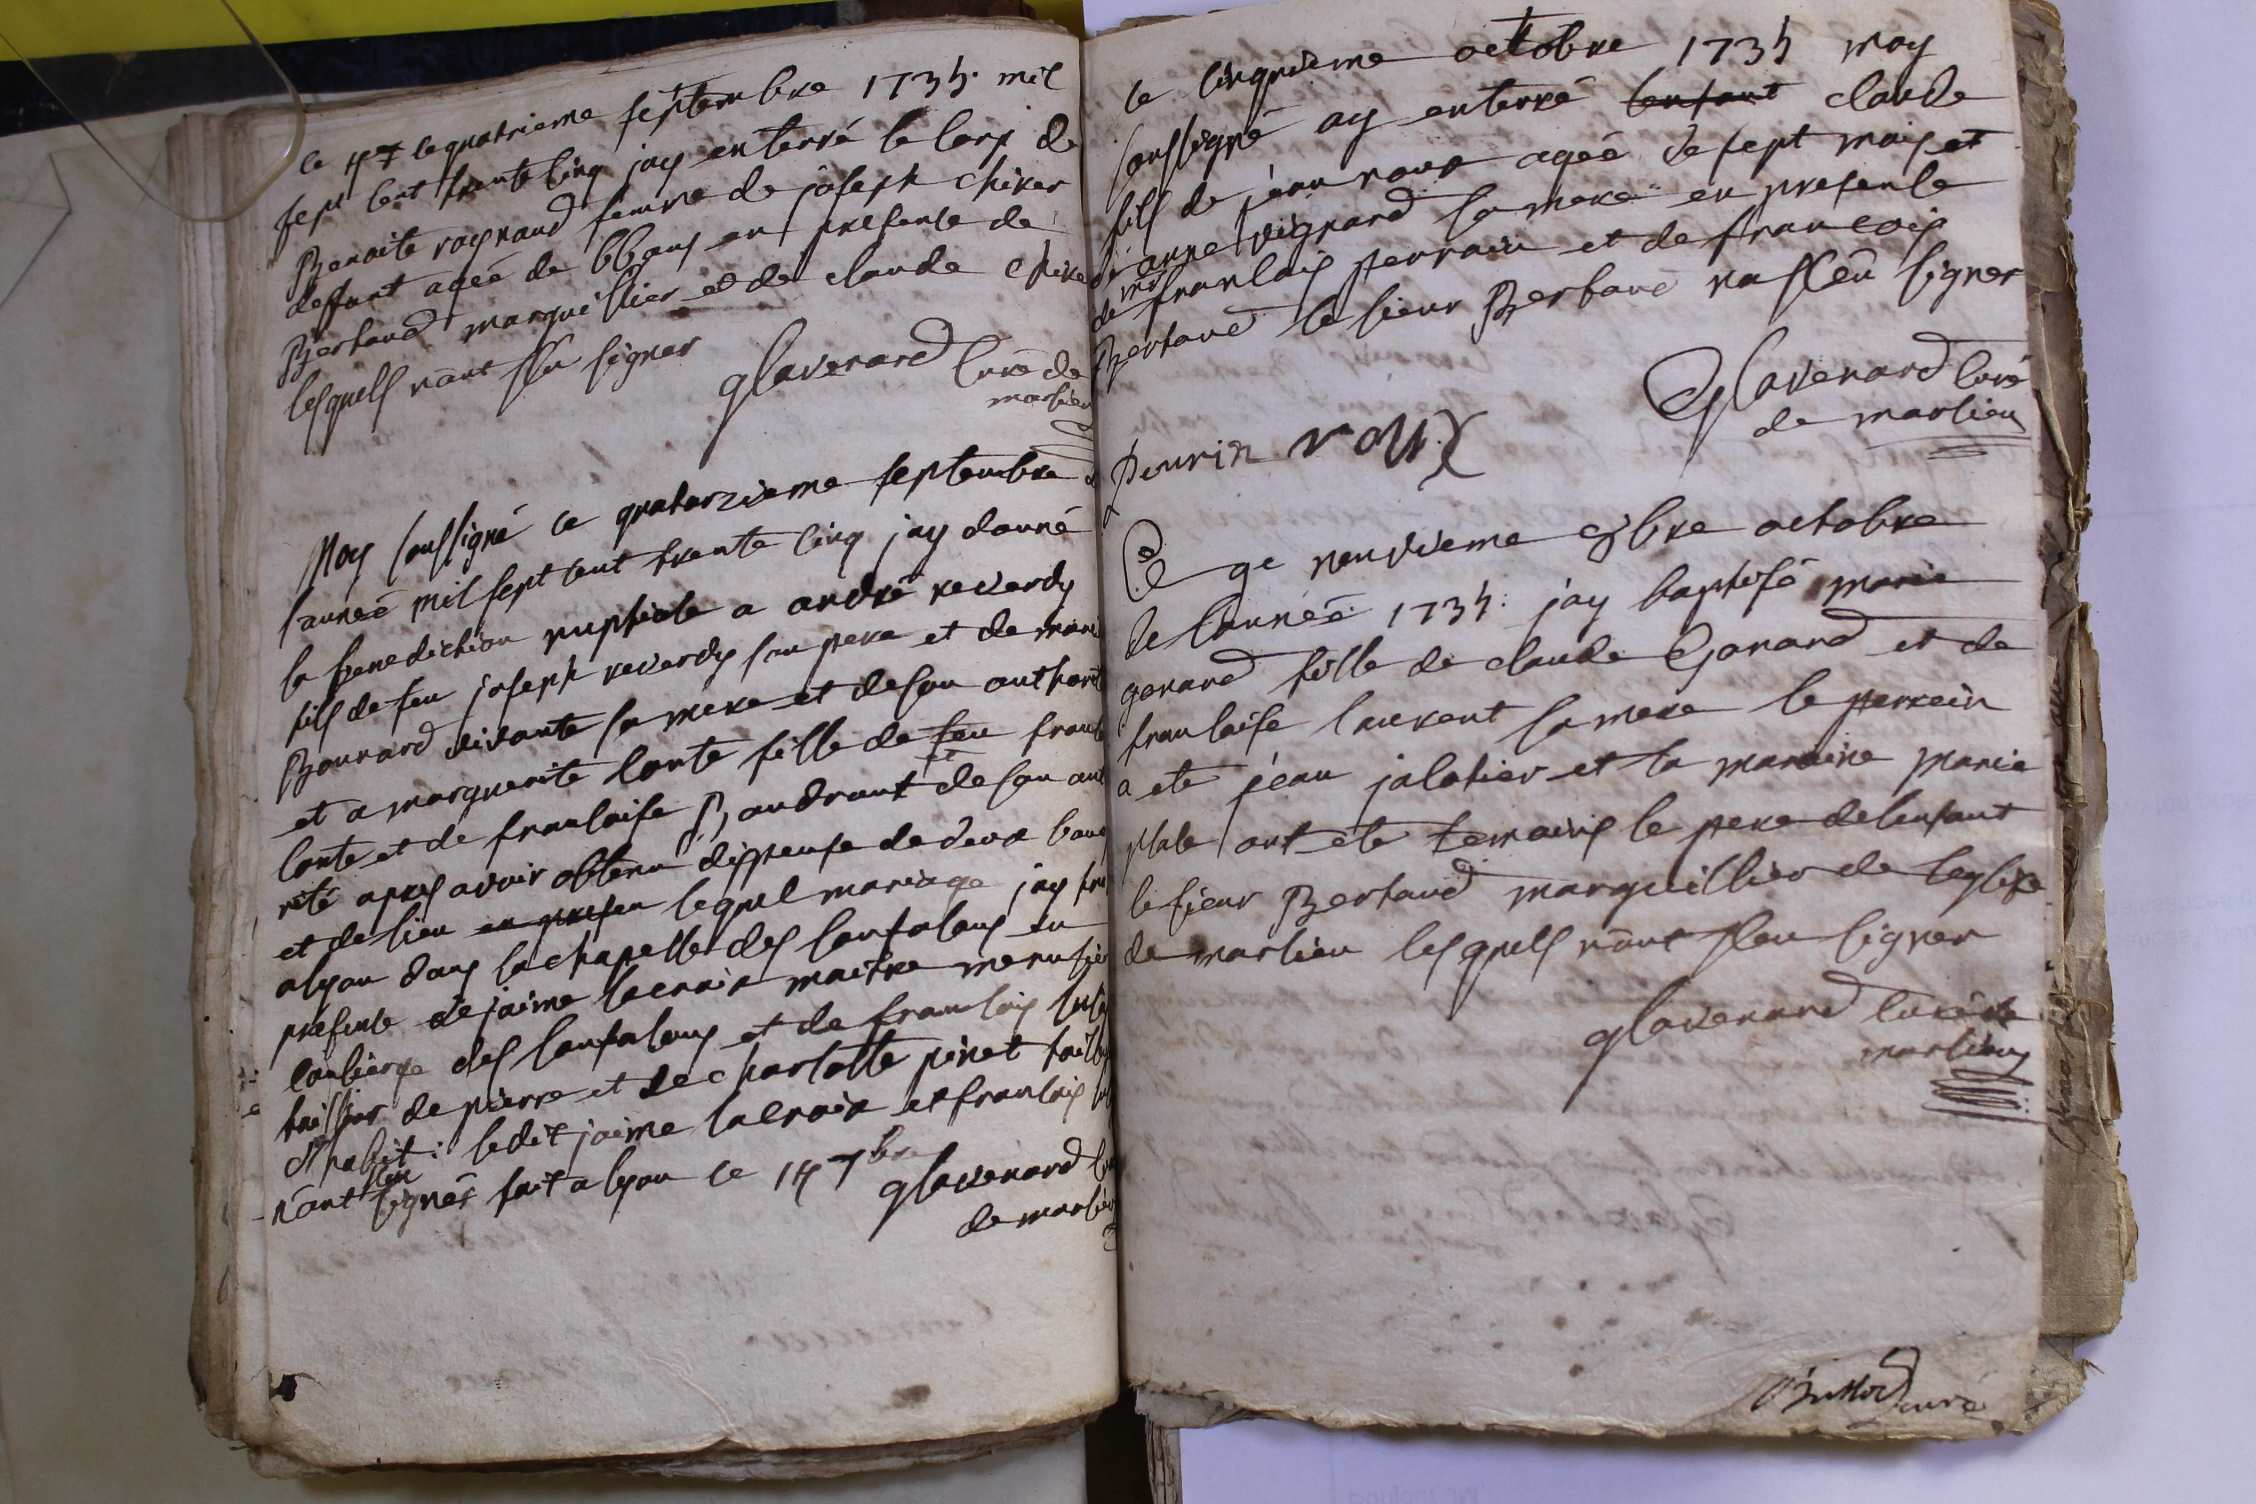 ce 4 7 le quatrieme septembre 1735. mil
sept cent trente cinq jay enterré le corp de
Benoite raynaud femme de joseph chirer
deffunt agée de 66 ans en presense de
Bertaud marguillier et de claude chire
lesquels nont sceu signer
glavenard curé de
marlieu
Moy soussigné ce quatorzieme septembre
lanneé mil sept cent trente cinq jay donné
la benediction nuptiale a andré reverdy
fils de feu joseph reverdy son pere et de marie
Bonnard vivante sa mere et de son authori
et a marguerite conte fille de feu francois
conte et de francoise Baudrant de son auto
rité apres avoir obtenu dispense de deux bancs
et de lieu en presen lequel mariage jay fait
a lyon dans la chapelle des confalons en
presense de jaime lacroix maitre menusier
concierge des confalons et de francois
tailleur de pierre et de charlotte pinet taill
dhabit: ledit jaime lacroix et francois
nont sceu signés fait a lyon ce 14 7bre
glavenard curé
de marlieu
le cinquieme octobre 1735 moy
soussigné ay enterré lenfant claude
fils de jean roux ageé de sept mois et
de anne vignard sa mere en presence
de mr francois perrain et de francois
Bertaud le sieur Bertaud na sceu signer
glavenard curé
de marlieu
perrin roux
Ce 9e neuvieme 8bre octobre
de lanneé 1735. jay baptisé marie
gonard fille de claude Gonard et de
francoise laurent sa mere le perrein
a ete jean jalatier et la maraine marie
plate ont ete temoins le pere de lenfant
le sieur Bertaud marguillier de leglise
de marlieu lesquels nont sceu signer
glavenard curé de
marlieu
curé